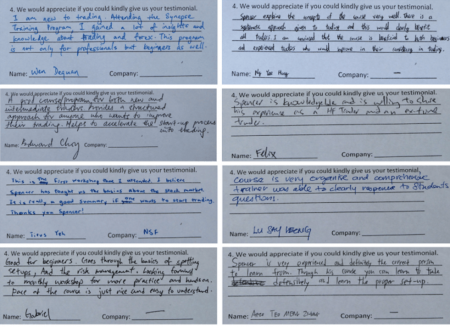 4. We would appreciate if you could kindly give us your testimonial.
I am new to trading. Attending the Synapse
Training Program I gained a lot of insights and
knowledge about trading and forex. This program
is not only for professionals but beginners as well.
Name: Wan Dequan Company:
4. We would appreciate if you could kindly give us your testimonial.
Spencer explains the concepts of the course very well. There is a
systematic approach given to trading and this would clearly
Name: Company: —
4. We would appreciate if you could kindly give us your testimonial.
A good course/program for both new and
intermediate traders. Provides a structured
approach for anyone who wants to improve
their trading. Helps to accelerate the start-up process
with trading.
Name: Edward Choy Company:
4. We would appreciate if you could kindly give us your testimonial.
Spencer is knowledgeable and is willing to share
his experience as a trader and an
trader.
Name: Felix Company:
4. We would appreciate if you could kindly give us your testimonial.
This is the first workshop that I attended. I believe
Spencer has taught us the basics about the stock market.
It is really a good seminar, if you wants to start trading.
Thanks you Spencer!
Name: Company: NSF
4. We would appreciate if you could kindly give us your testimonial.
Course is very extensive and comprehensive
trainer was able to clearly response to students
question.
Name: Company:
4. We would appreciate if you could kindly give us your testimonial.
Good for beginners. Goes through the basics of spotting
setups, and the risk management. Looking forward
to monthly workshop for more practice and hands on.
Pace of the course is just nice and easy to understand.
Name: Gabriel Company: —
4. We would appreciate if you could kindly give us your testimonial.
Spencer is very experienced and definitely the correct person
to learn from. Through his course you can learn to trade
defensively and learn the proper set-up.
Name: Company: —